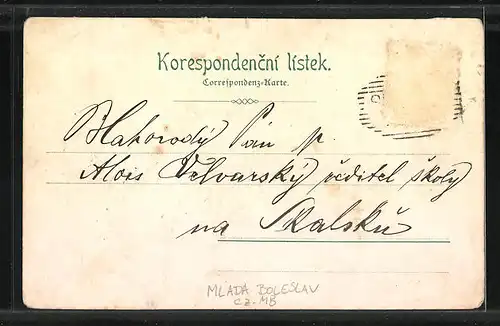 Korespondenční lístek.
Correspondenz-Karte.
Blahorodý Pán p.
Alois Velvarský řiditel školy
na Skalsku
MLADA BOLESLAV
CZ-MB